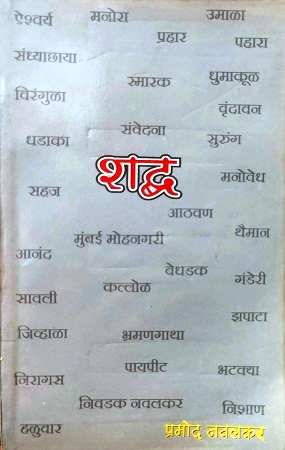 ऐश्वर्य मनोरा उमाळा
प्रहार पहारा
संध्याछाया
स्मारक धुमाकूळ
विरंगुळा
वृंदावन
संवेदना
धडाका सुरुंग
शद्ब
मनोवेध
सहज
आठवण
थैमान
मुंबई मोहनगरी
आनंद
वेधडक
गंडेरी
कल्लोळ
सावली
झपाटा
जिव्हाळा भ्रमणगाथा
पायपीट भटक्या
निरागस
निवडक नवलकर निशाण
हळुवार
प्रमोद नवलकर